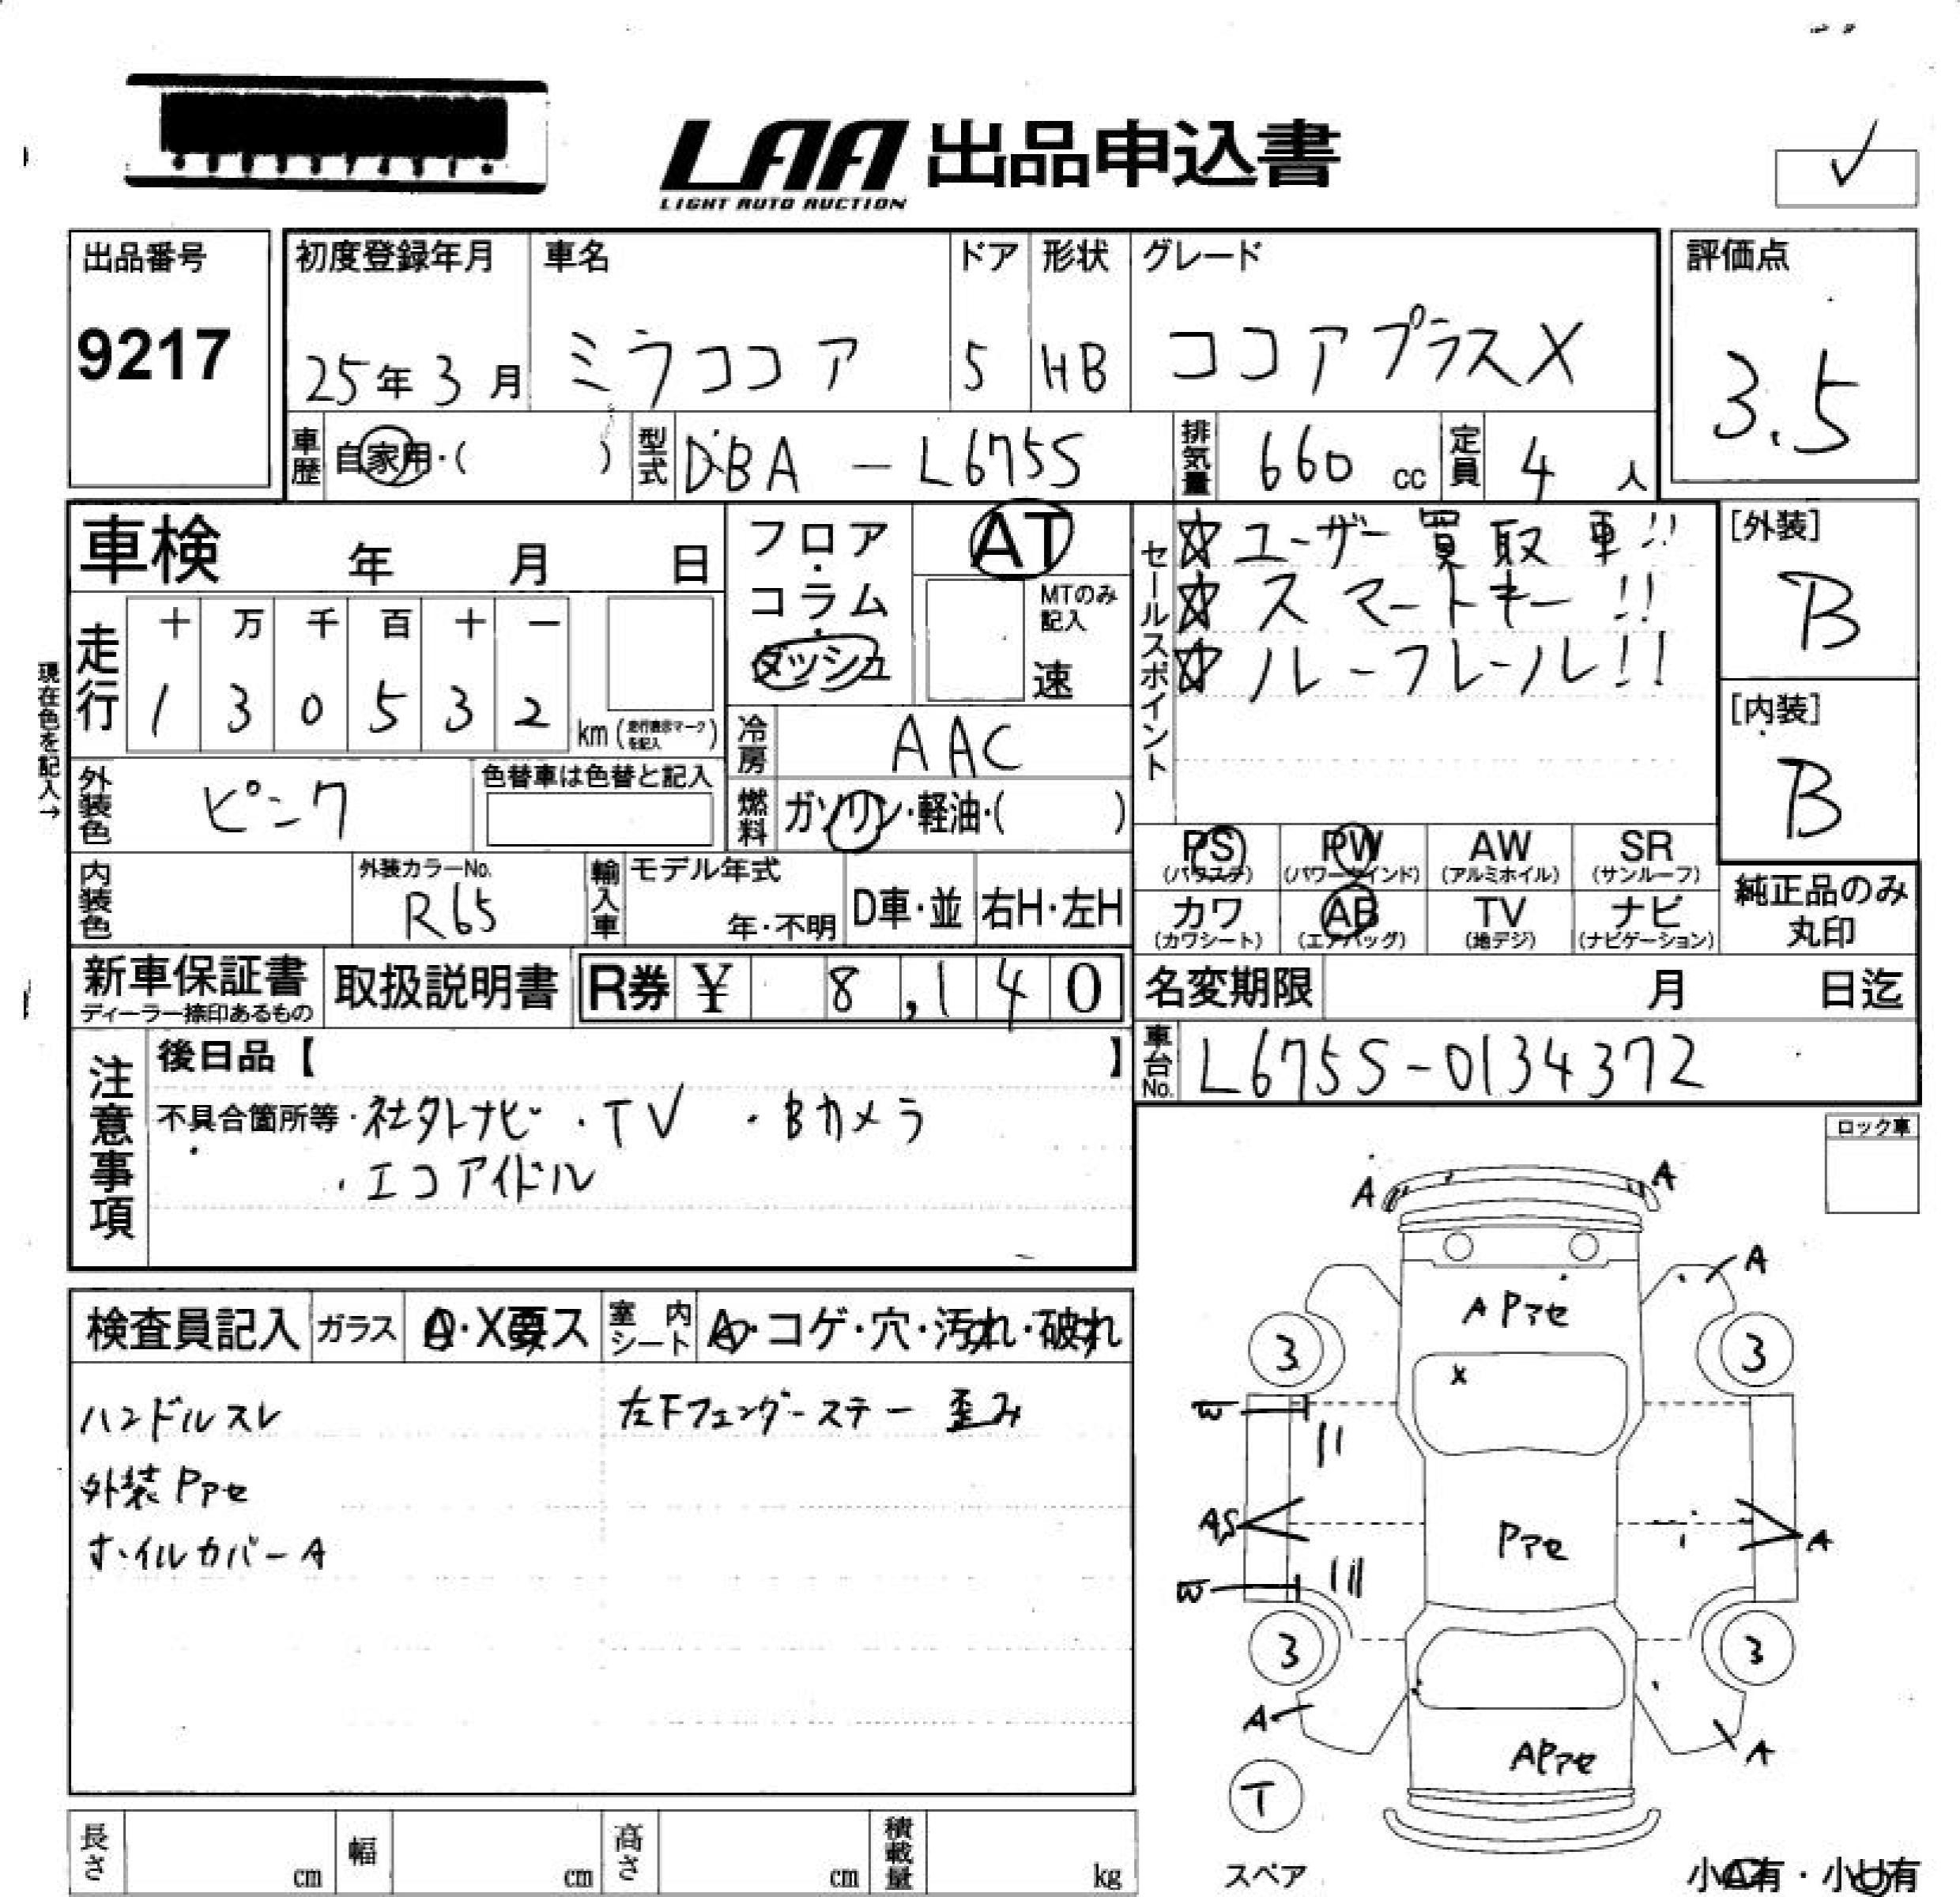 LAA 出品申込書
LIGHT AUTO AUCTION
出品番号
9217
初度登録年月
25年3月
車名
ミラココア
ドア
5
形状
HB
グレード
ココアプラスX
評価点
3.5
車歴
自家用・( )
型式
DBA-L675S
排気量
660 cc
定員
4 人
車検 年 月 日
走行
十 万 千 百 十 一
1 3 0 5 3 2
km (走行表示マークを記入)
現在色を記入→
外装色
ピンク
色替車は色替と記入
内装色
外装カラーNo.
R65
フロア・コラム・ダッシュ
AT
MTのみ記入
速
冷房
AAC
燃料
ガソリン・軽油・( )
輸入車
モデル年式
年・不明
D車・並
右H・左H
セールスポイント
☆ユーザー買取車!!
☆スマートキー!!
☆ルーフレール!!
[外装]
B
[内装]
B
PS
(パワステ)
PW
(パワーウインド)
AW
(アルミホイル)
SR
(サンルーフ)
カワ
(カワシート)
AB
(エアバッグ)
TV
(地デジ)
ナビ
(ナビゲーション)
純正品のみ
丸印
新車保証書
ディーラー捺印あるもの
取扱説明書
R券 ¥ 8,140
名変期限 月 日迄
車台No.
L675S-0134372
注意事項
後日品【 】
不具合箇所等・社外ナビ・TV ・Bカメラ
・エコアイドル
ロック車
検査員記入
ガラス
A・X要ス
室内シート
A・コゲ・穴・汚れ・破れ
ハンドルスレ
左Fフェンダーステー 歪み
外装Pアセ
ホイルカバーA
A A
A
A Pアセ
3 3
X
W
AS
Pアセ
A
W
3 3
A
A
APアセ
T
スペア
小A有・小U有
長さ cm
幅 cm
高さ cm
積載量 kg